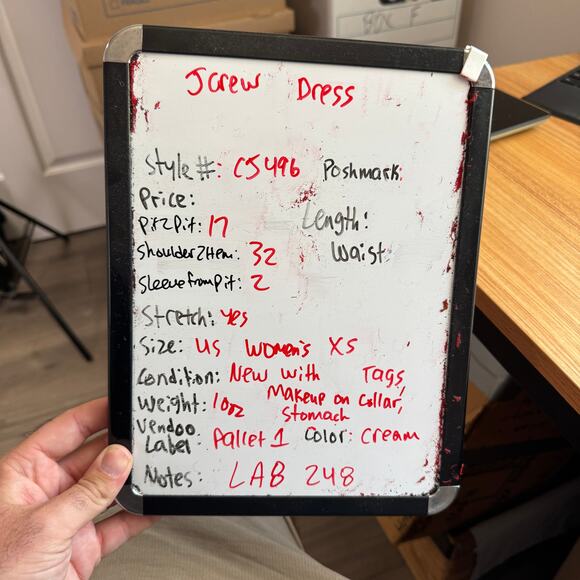 Jcrew Dress
Style #: CJ496 Poshmark:
Price:
Pit2Pit: 17 Length:
Shoulder2Hem: 32 Waist
Sleeve from Pit: 2
Stretch: yes
Size: US Women's XS
Condition: New with Tags,
Makeup on Collar,
Weight: 10oz Stomach
Vendoo
Label: Pallet 1 Color: Cream
Notes: LAB 248